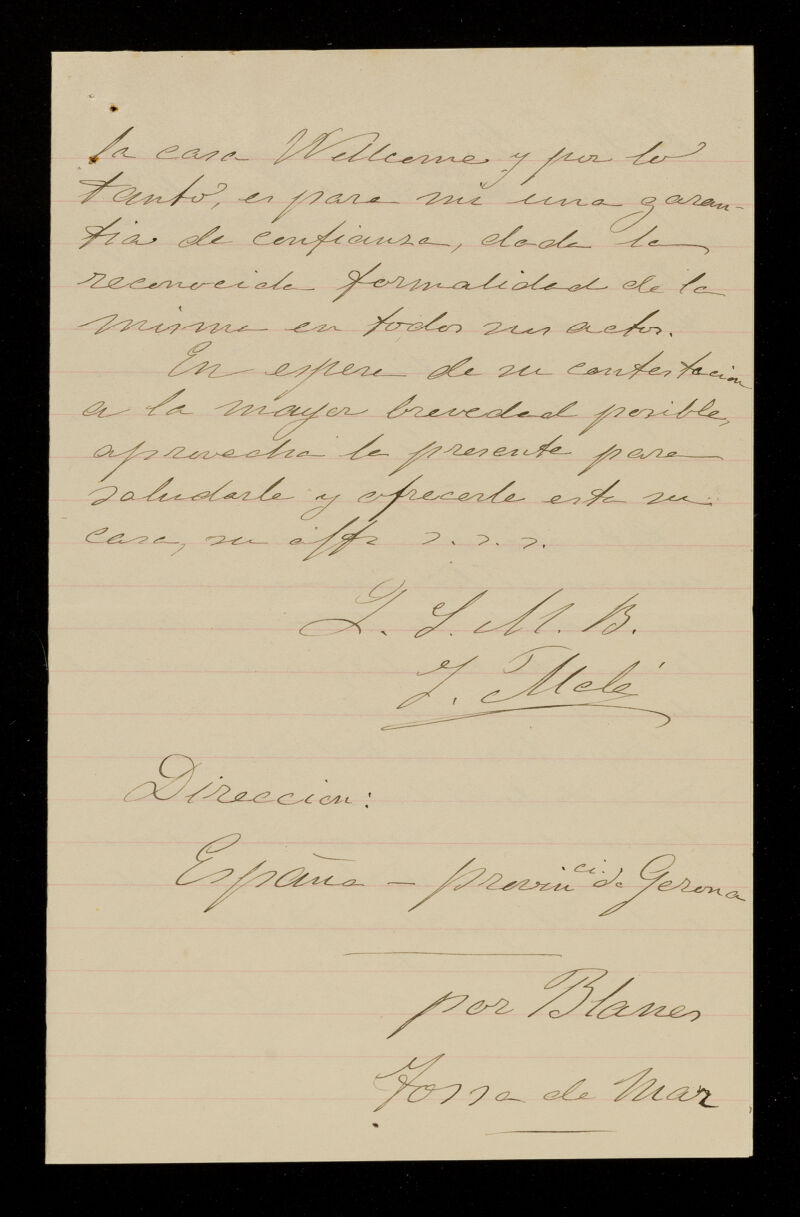 la casa Wellcome y por lo
tanto, es para mi una garan-
tia de confianza, dada la
reconocida formalidad de la
misma en todos sus actos.
En espera de su contestacion
a la mayor brevedad posible,
aprovecha la presente para
saludarle y ofrecerle esta su
casa, su affo s. s. s.
L. S. M. B.
J. Melé
Direccion:
España - provinci. de Gerona
por Blanes
Tossa de Mar